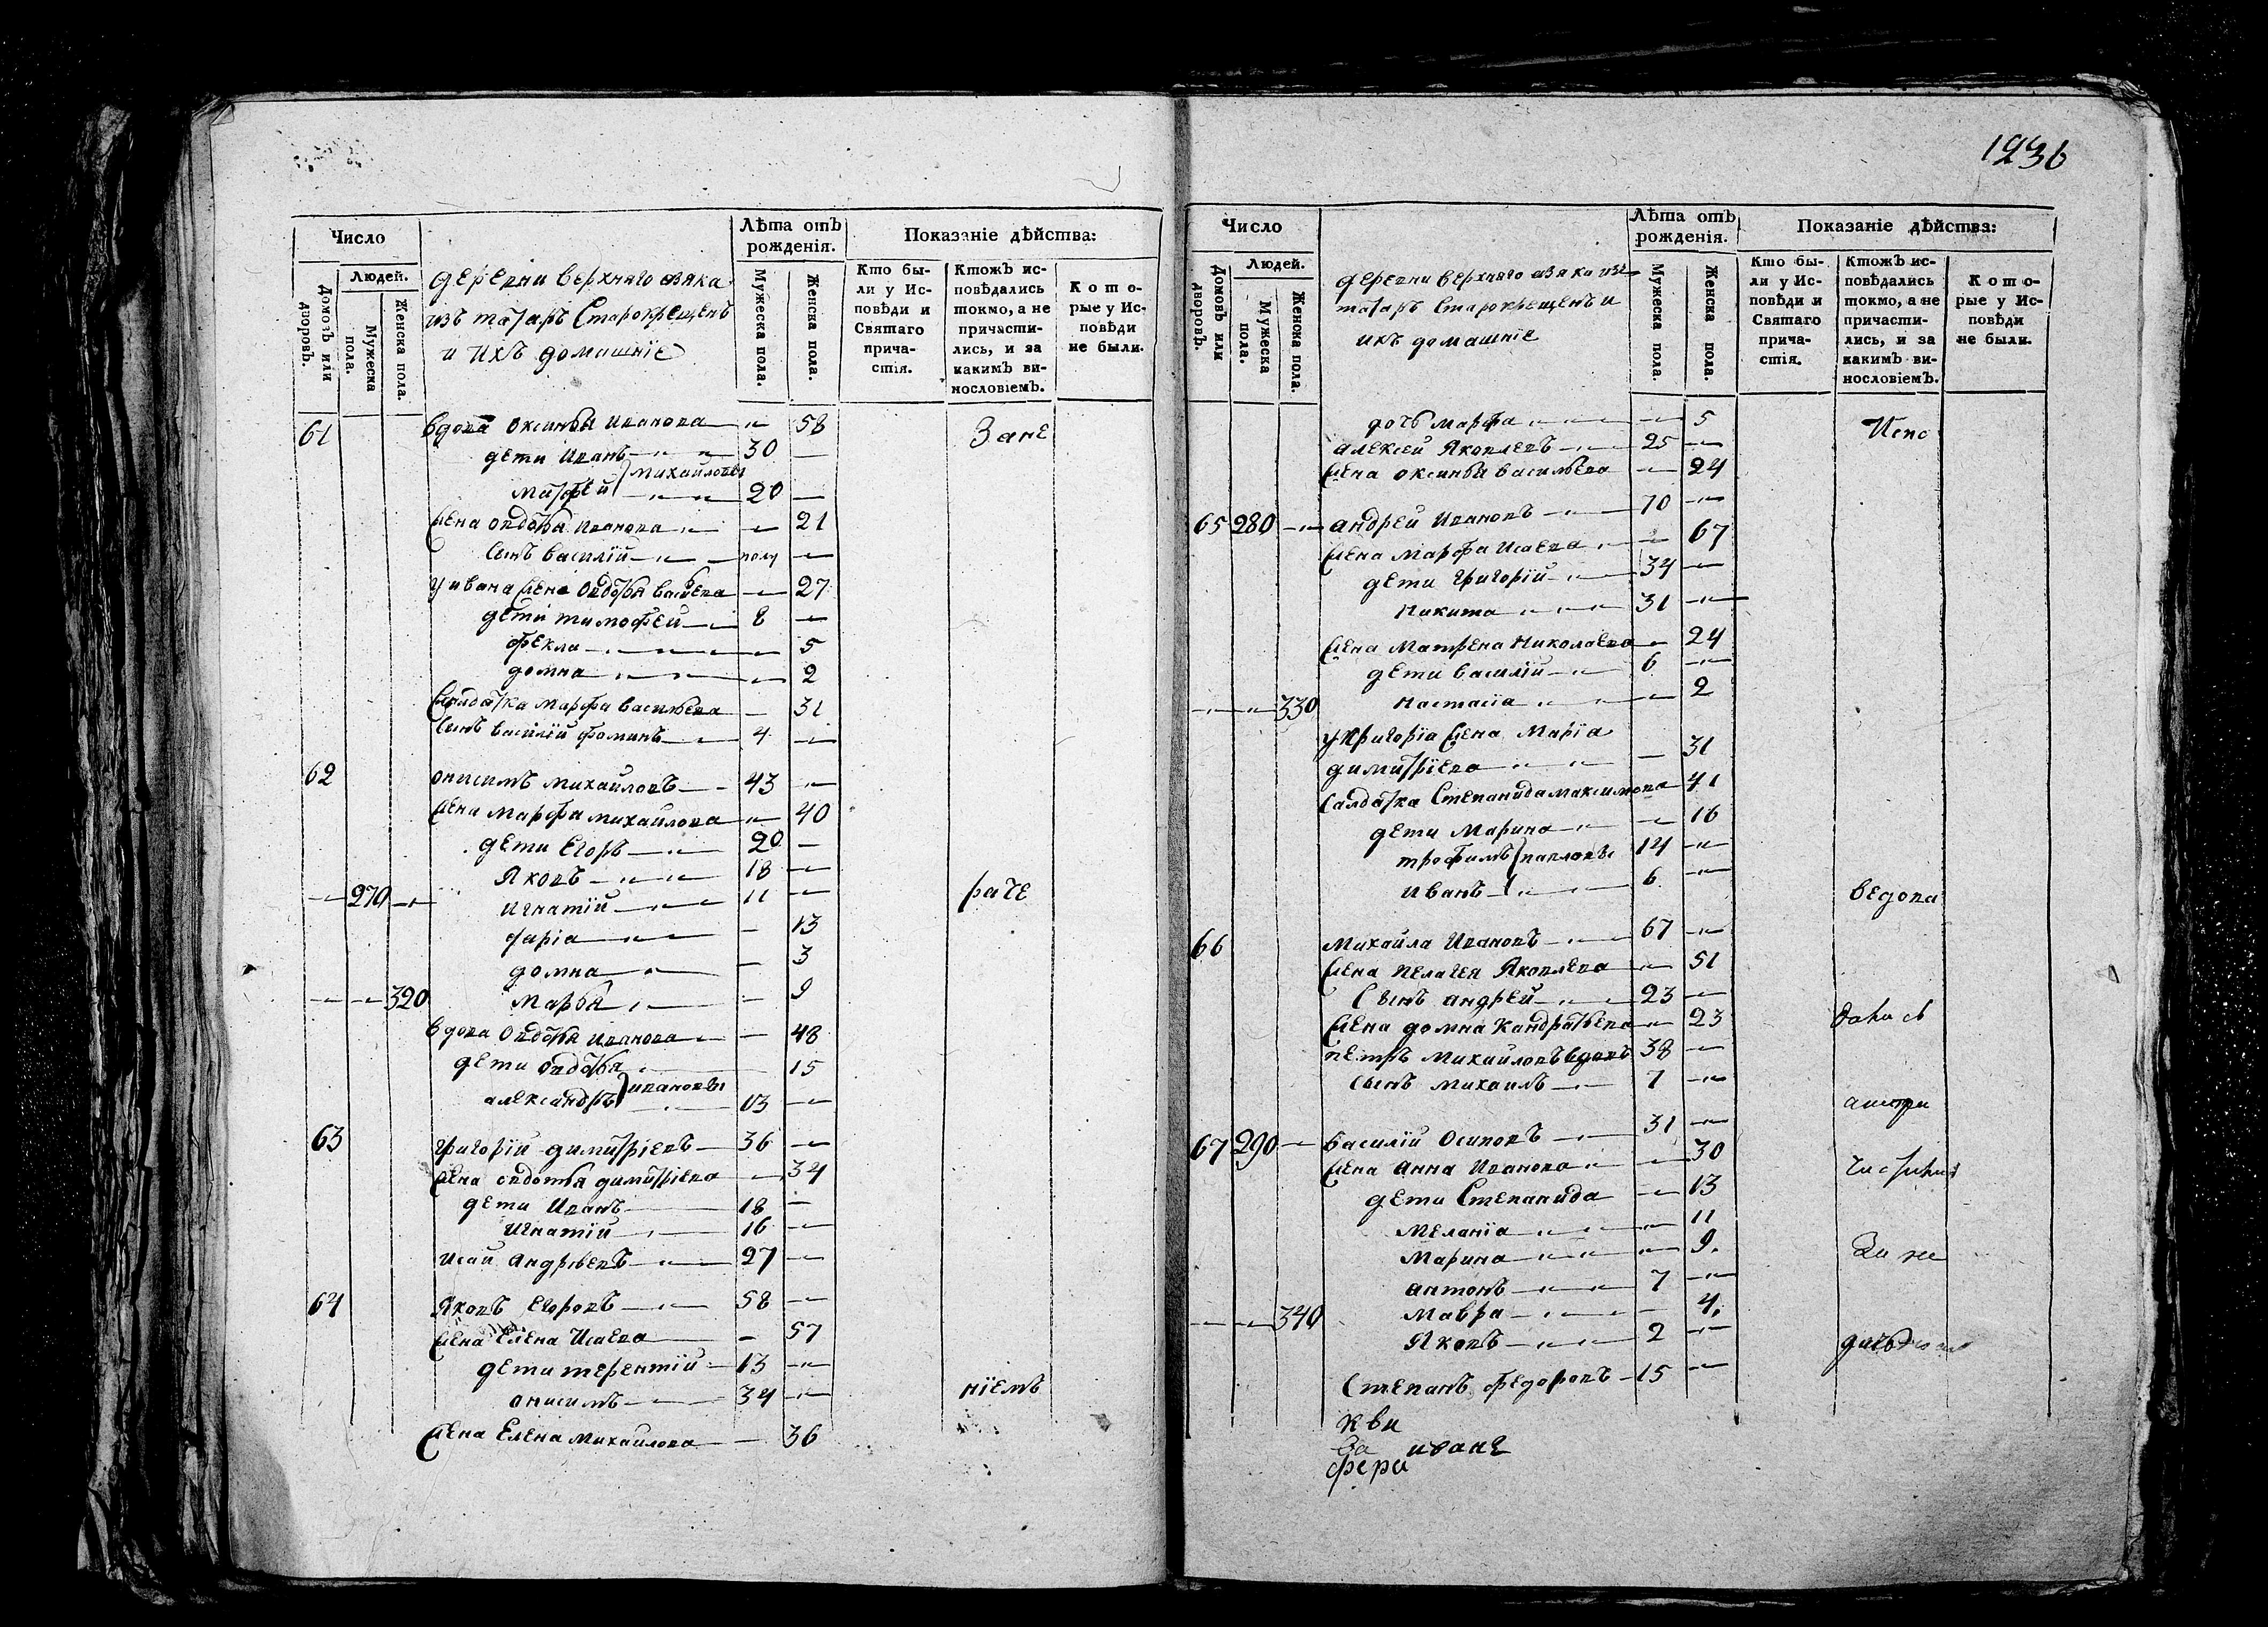 1236
Число
Людей.
Домовъ или дворовъ.
Мужеска пола.
Женска пола.
деревни верхняго азяка
изъ татаръ Старокрещенъ
и ихъ домашнiе
Лѣта отъ рожденія.
Мужеска пола.
Женска пола.
Показаніе дѣйства:
Кто бы-
ли у Ис-
повѣди и
Святаго
прича-
стія.
Ктожъ ис-
повѣдались
токмо, а не
причасти-
лись, и за
какимъ ви-
нословіемъ.
Кото-
рые у Ис-
повѣди
не были.
61 вдова Оксинья Иванова — 58 Зане
дети Иванъ 30 —
Михайловы
Матфей 20 —
жена овдотья Иванова — 21
сынъ василiй — полу —
у ивана жена Овдотья васильева — 27
дети тимофей — 8 —
фекла — 5
домна — 2
Салдатка Марфа васильева — 31
сынъ василiй фоминъ — 4 —
62 онисимъ михайловъ — 43 —
жена марфа михайлова — 40
дети Егоръ — 20 —
Яковъ — 18 —
— 270 — Игнатiй — 11 — раче
дарiа — 13
домна — 3
— — 320 Марья — 9
вдова Овдотья иванова — 48
дети Овдотья — 15
ивановы
александръ 13 —
63 григорiй димитрiевъ — 36 —
жена овдотья димитрiева — 34
дети Иванъ — 18 —
Игнатiй — 16 —
Исай Андрѣевъ — 27 —
64 Яковъ Егоровъ — 58 —
жена Елена Исаева — 57
дети терентiй — 13 —
онисимъ — 34 — нiемъ
жена Елена михаилова — 36
Число
Людей.
Домовъ или дворовъ.
Мужеска пола.
Женска пола.
деревни верхняго азяка изъ
татаръ Старокрещенъ и
ихъ домашнiе
Лѣта отъ рожденія.
Мужеска пола.
Женска пола.
Показаніе дѣйства:
Кто бы-
ли у Ис-
повѣди и
Святаго
прича-
стія.
Ктожъ ис-
повѣдались
токмо, а не
причасти-
лись, и за
какимъ ви-
нословіемъ.
Кото-
рые у Ис-
повѣди
не были.
дочь марфа — 5 Испо
алексей Яковлевъ — 25 —
жена оксинья васильева — 24
65 280 — андрей Ивановъ — 70 —
жена марфа Исаева — 67
дети григорiй — 34 —
Никита — 31 —
жена Матрена Николаева — 24
дети василiй — 6 —
— — 330 Настасiа — 2
у григорiа жена Марiа
димитрiева — 31
салдатка Степанида максимова 41
дети Марина — 16
трофимъ павловы 14 —
иванъ 6 — ведова
66 Михайла Ивановъ — 67 —
жена Пелагея Яковлева — 51
сынъ андрей — 23 —
жена домна Кандратьева — 23
петръ михайловъ вдовъ 38 —
сынъ михаилъ — 7 —
67 290 — василiй Осиповъ — 31 —
жена анна Иванова — 30
дети Степанида — 13
Меланiа — 11
Марина — 9.
антонъ — 7 —
— — 340 мавра — 4.
Яковъ — 2 —
Степанъ федоровъ — 15 —